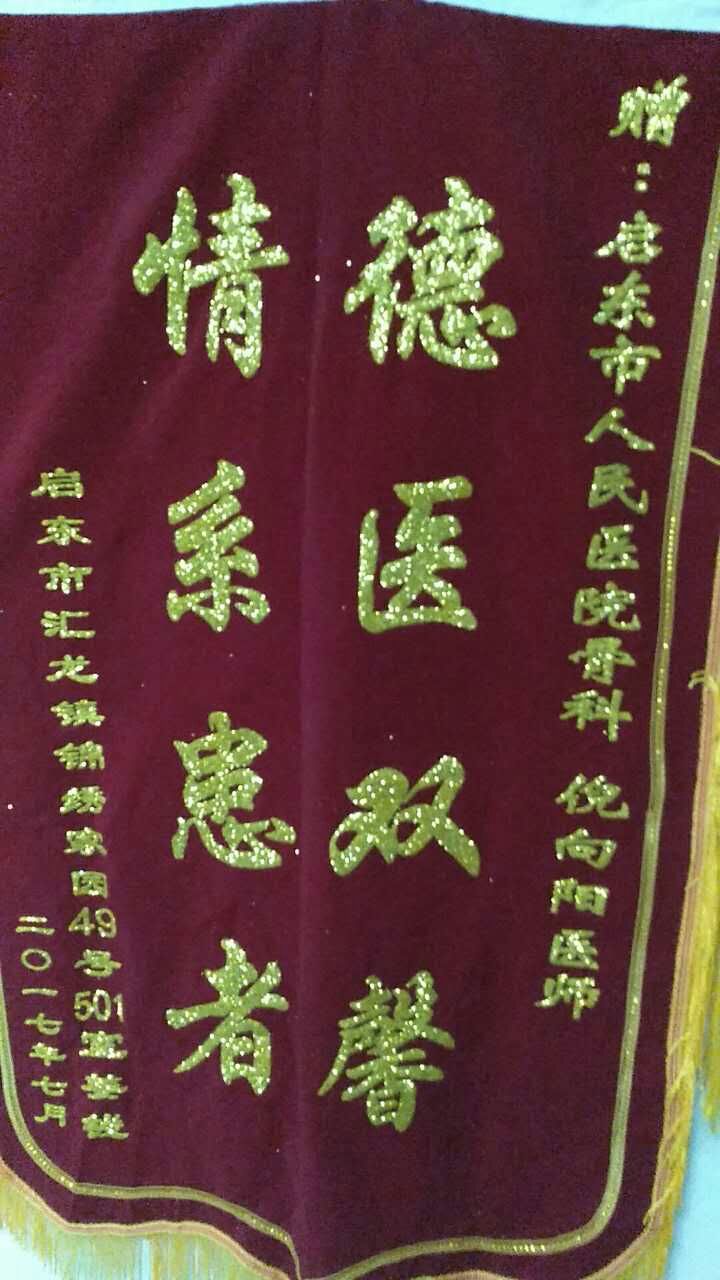 赠：启东市人民医院骨科 倪向阳医师
德医双馨
情系患者
启东市汇龙镇锦绣家园49号501室
二〇一七年七月